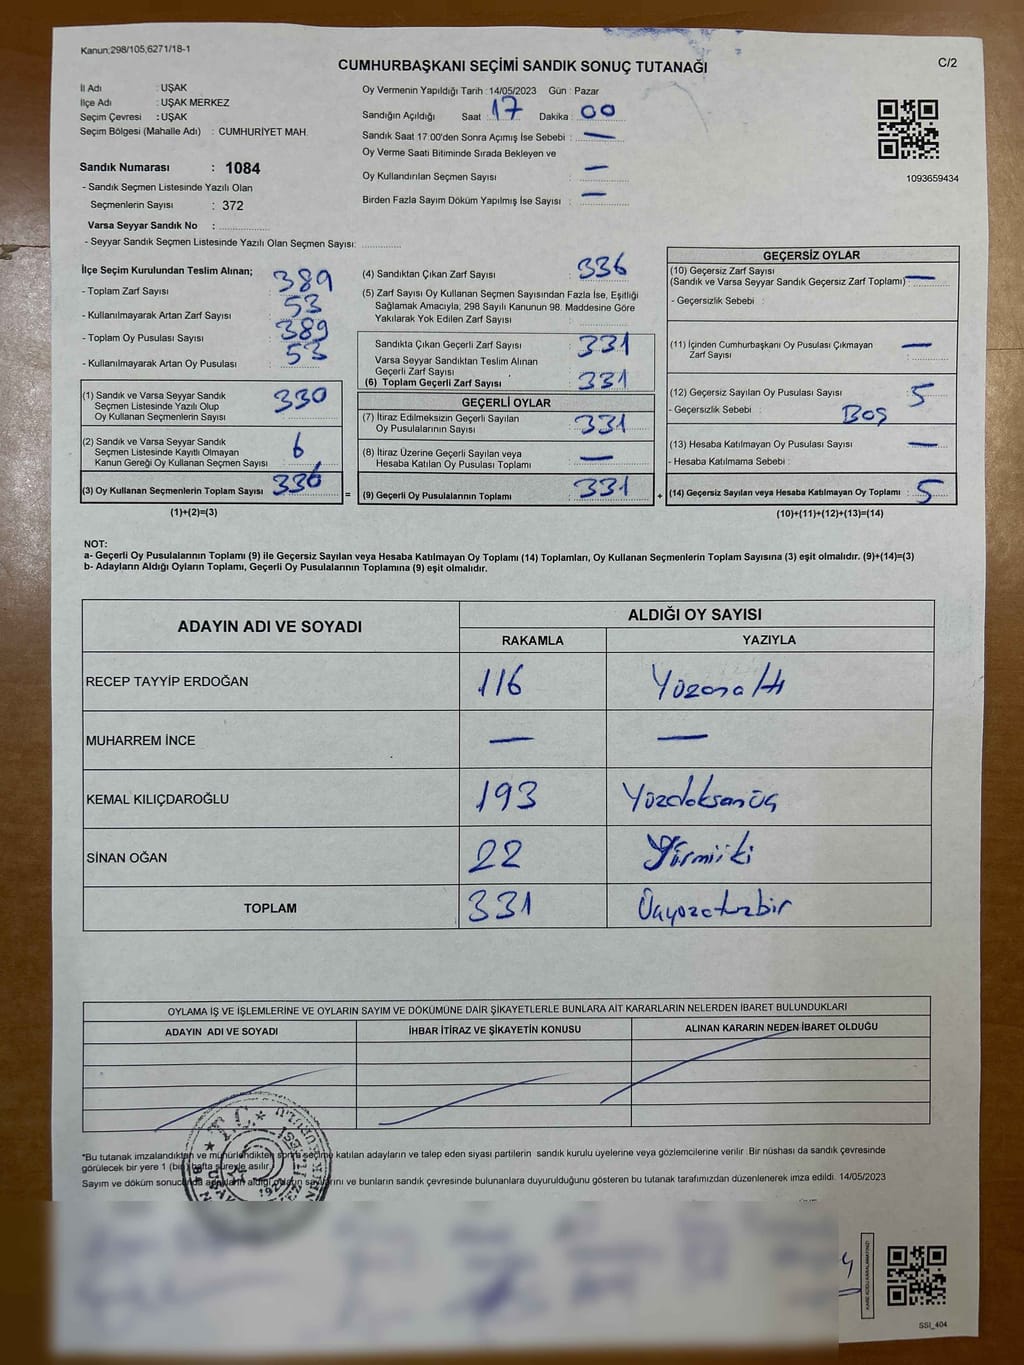 Kanun;298/105,6271/18-1
CUMHURBAŞKANI SEÇİMİ SANDIK SONUÇ TUTANAĞI
C/2
İl Adı : UŞAK
İlçe Adı : UŞAK MERKEZ
Seçim Çevresi : UŞAK
Seçim Bölgesi (Mahalle Adı) : CUMHURİYET MAH.
Sandık Numarası : 1084
- Sandık Seçmen Listesinde Yazılı Olan
Seçmenlerin Sayısı : 372
Varsa Seyyar Sandık No :
- Seyyar Sandık Seçmen Listesinde Yazılı Olan Seçmen Sayısı:
Oy Vermenin Yapıldığı Tarih : 14/05/2023 Gün : Pazar
Sandığın Açıldığı Saat : 17 Dakika : 00
Sandık Saat 17:00'den Sonra Açımış İse Sebebi : —
Oy Verme Saati Bitiminde Sırada Bekleyen ve
Oy Kullandırılan Seçmen Sayısı : —
Birden Fazla Sayım Döküm Yapılmış İse Sayısı : —
1093659434
İlçe Seçim Kurulundan Teslim Alınan;
- Toplam Zarf Sayısı : 389
- Kullanılmayarak Artan Zarf Sayısı : 53
- Toplam Oy Pusulası Sayısı : 389
- Kullanılmayarak Artan Oy Pusulası : 53
(1) Sandık ve Varsa Seyyar Sandık
Seçmen Listesinde Yazılı Olup
Oy Kullanan Seçmenlerin Sayısı : 330
(2) Sandık ve Varsa Seyyar Sandık
Seçmen Listesinde Kayıtlı Olmayan
Kanun Gereği Oy Kullanan Seçmen Sayısı : 6
(3) Oy Kullanan Seçmenlerin Toplam Sayısı : 336
(1)+(2)=(3)
(4) Sandıktan Çıkan Zarf Sayısı : 336
(5) Zarf Sayısı Oy Kullanan Seçmen Sayısından Fazla İse, Eşitliği
Sağlamak Amacıyla; 298 Sayılı Kanunun 98. Maddesine Göre
Yakılarak Yok Edilen Zarf Sayısı :
Sandıkta Çıkan Geçerli Zarf Sayısı : 331
Varsa Seyyar Sandıktan Teslim Alınan
Geçerli Zarf Sayısı :
(6) Toplam Geçerli Zarf Sayısı : 331
GEÇERLİ OYLAR
(7) İtiraz Edilmeksizin Geçerli Sayılan
Oy Pusulalarının Sayısı : 331
(8) İtiraz Üzerine Geçerli Sayılan veya
Hesaba Katılan Oy Pusulası Toplamı : —
= (9) Geçerli Oy Pusulalarının Toplamı : 331 +
GEÇERSİZ OYLAR
(10) Geçersiz Zarf Sayısı
(Sandık ve Varsa Seyyar Sandık Geçersiz Zarf Toplamı) : —
- Geçersizlik Sebebi :
(11) İçinden Cumhurbaşkanı Oy Pusulası Çıkmayan
Zarf Sayısı : —
(12) Geçersiz Sayılan Oy Pusulası Sayısı : 5
- Geçersizlik Sebebi : Boş
(13) Hesaba Katılmayan Oy Pusulası Sayısı : —
- Hesaba Katılmama Sebebi :
(14) Geçersiz Sayılan veya Hesaba Katılmayan Oy Toplamı : 5
(10)+(11)+(12)+(13)=(14)
NOT:
a- Geçerli Oy Pusulalarının Toplamı (9) ile Geçersiz Sayılan veya Hesaba Katılmayan Oy Toplamı (14) Toplamları, Oy Kullanan Seçmenlerin Toplam Sayısına (3) eşit olmalıdır. (9)+(14)=(3)
b- Adayların Aldığı Oyların Toplamı, Geçerli Oy Pusulalarının Toplamına (9) eşit olmalıdır.
ADAYIN ADI VE SOYADI
ALDIĞI OY SAYISI
RAKAMLA YAZIYLA
RECEP TAYYİP ERDOĞAN 116 Yüzonaltı
MUHARREM İNCE — —
KEMAL KILIÇDAROĞLU 193 Yüzdoksanüç
SİNAN OĞAN 22 Yirmiiki
TOPLAM 331 Üçyüzotuzbir
OYLAMA İŞ VE İŞLEMLERİNE VE OYLARIN SAYIM VE DÖKÜMÜNE DAİR ŞİKAYETLERLE BUNLARA AİT KARARLARIN NELERDEN İBARET BULUNDUKLARI
ADAYIN ADI VE SOYADI İHBAR İTİRAZ VE ŞİKAYETİN KONUSU ALINAN KARARIN NEDEN İBARET OLDUĞU
*Bu tutanak imzalandıktan ve mühürlendikten sonra seçime katılan adayların ve talep eden siyasi partilerin sandık kurulu üyelerine veya gözlemcilerine verilir .Bir nüshası da sandık çevresinde
görülecek bir yere 1 (bir) hafta süreyle asılır.
Sayım ve döküm sonucunda adayların aldığı oyların sayılarını ve bunların sandık çevresinde bulunanlara duyurulduğunu gösteren bu tutanak tarafımızdan düzenlenerek imza edildi. 14/05/2023
T.C.
SSI_404